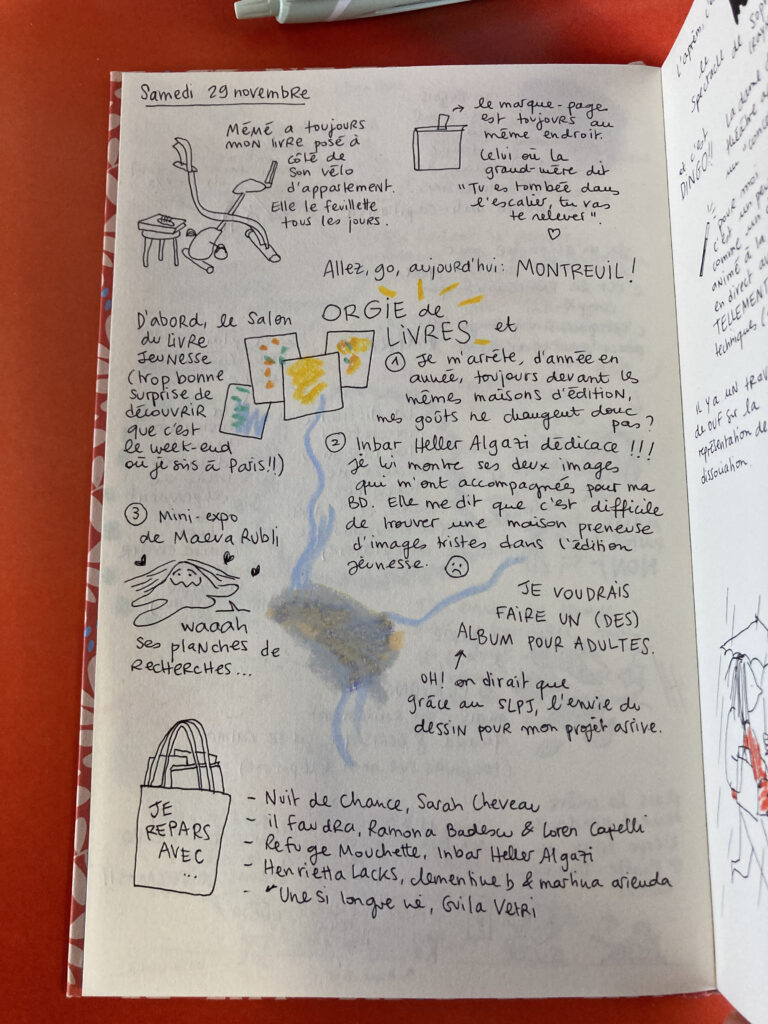 Samedi 29 novembre
Mémé a toujours
mon livre posé à
côté de
son vélo
d'appartement.
Elle le feuillette
tous les jours.
le marque-page
est toujours au
même endroit.
Celui où la
grand-mère dit
"Tu es tombée dans
l'escalier, tu vas
te relever".
Allez, go, aujourd'hui: MONTREUIL!
D'abord, le Salon
du livre
Jeunesse
(trop bonne
surprise de
découvrir
que c'est
le week-end
où je suis à Paris!!)
ORGIE de
LIVRES et
① Je m'arrête, d'année en
année, toujours devant les
mêmes maisons d'édition,
mes goûts ne changent donc
pas?
② Inbar Heller Algazi dédicace!!!
je lui montre ses deux images
qui m'ont accompagnées pour ma
BD. Elle me dit que c'est difficile
de trouver une maison preneuse
d'images tristes dans l'édition
jeunesse.
③ Mini-expo
de Maeva Rubli
waaah
ses planches de
recherches...
JE VOUDRAIS
FAIRE UN (DES)
ALBUM POUR ADULTES.
OH! on dirait que
grâce au SLPJ, l'envie du
dessin pour mon projet arrive.
JE
REPARS
AVEC
...
- Nuit de chance, Sarah Cheveau
- il faudra, Ramona Badescu & Loren Capelli
- Refuge Mouchette, Inbar Heller Algazi
- Henrietta Lacks, clementine b & martina arienda
- Une si longue
L'aprèm, c'
le
spectacle de
et c'est
DINGO!!
pour moi
c'est un peu
comme un
animé à la
en direct au
TELLEMENT
techniques
IL Y A UN TRAV
de OUF sur la
représentation de
dissociation.